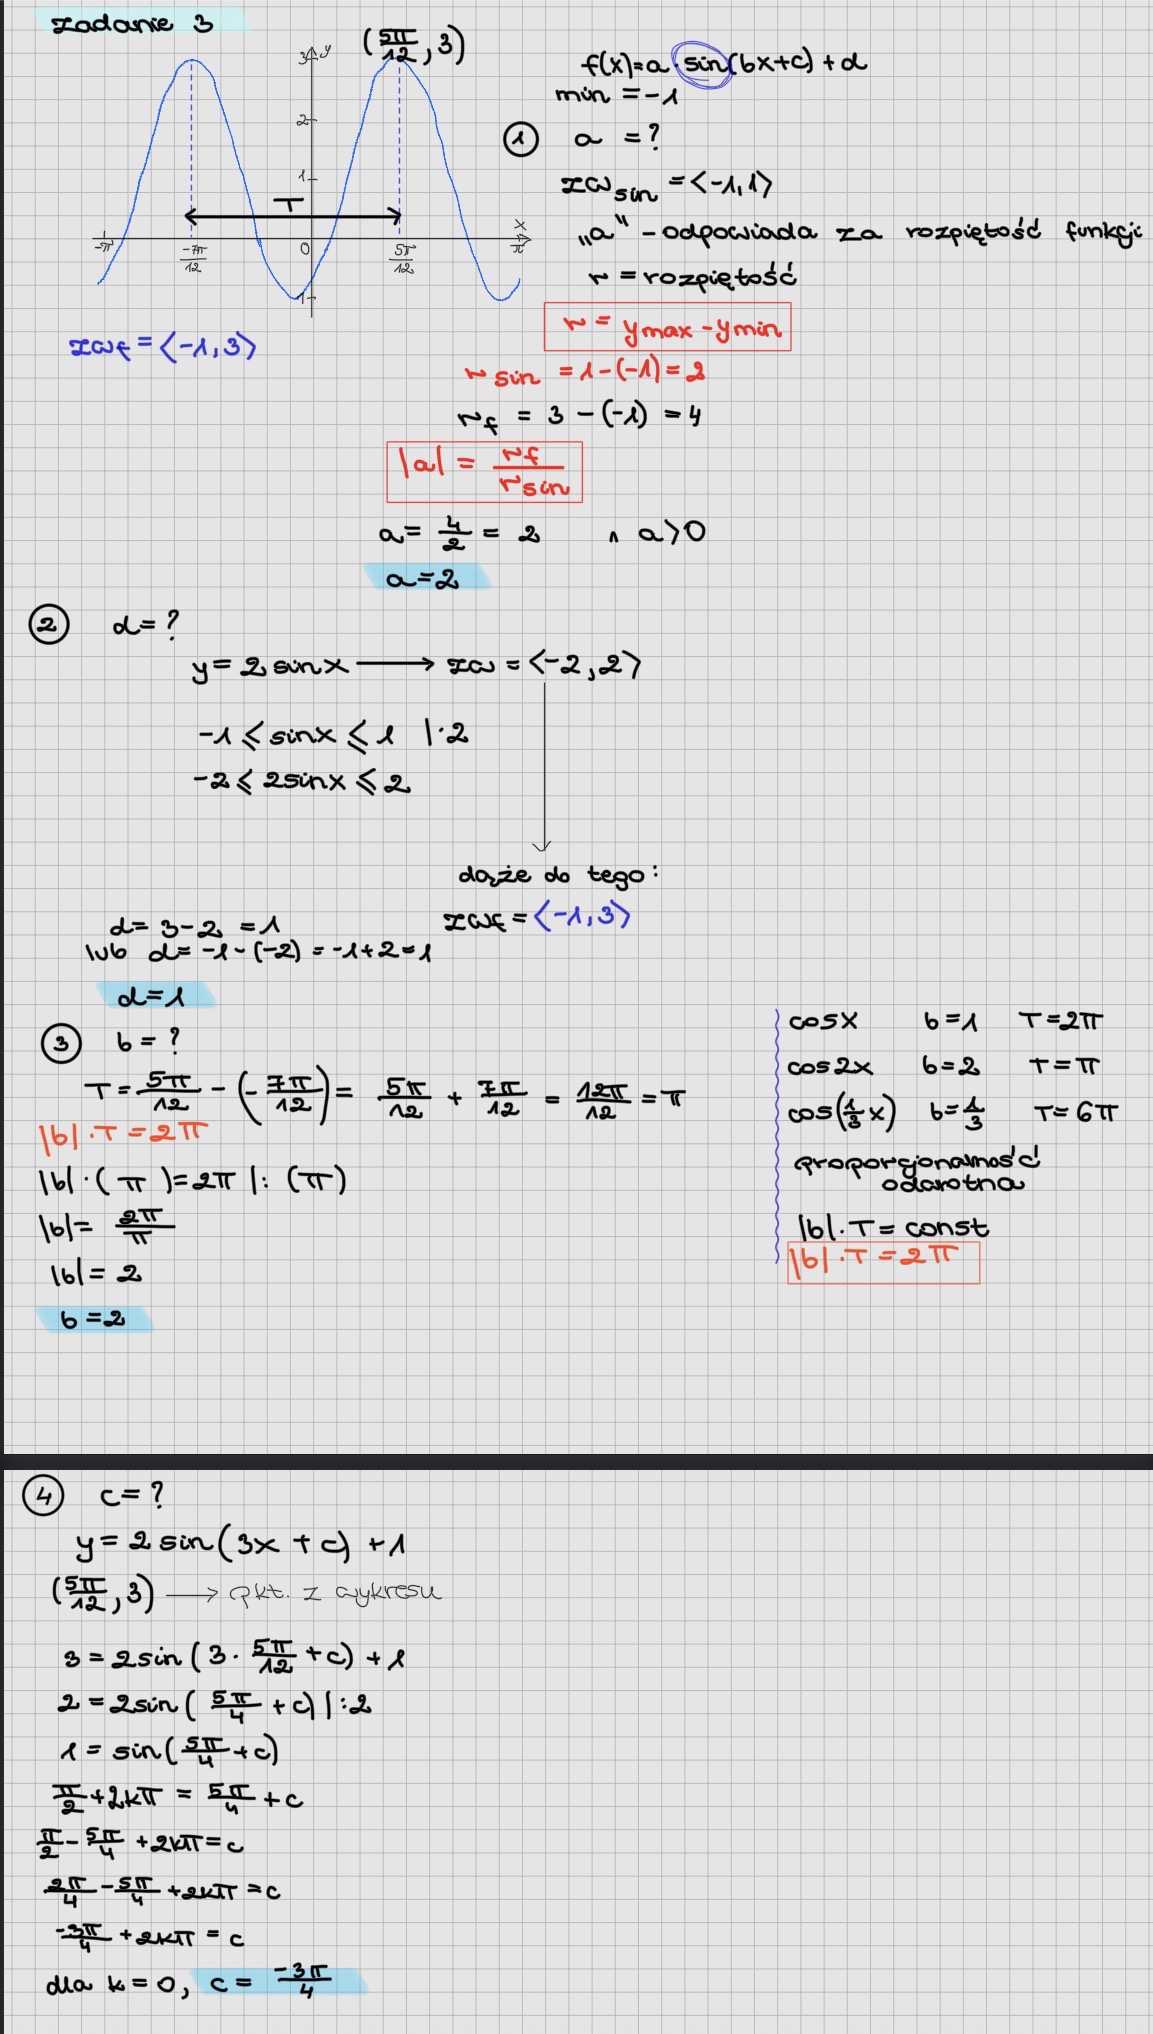 Zadanie 3
(5π/12, 3)
3 y
2
1
T
-π -7π/12 0 5π/12 x π
-1
ZWf = ⟨-1, 3⟩
f(x) = a · sin(bx+c) + d
min = -1
① a = ?
ZWsin = ⟨-1, 1⟩
„a" - odpowiada za rozpiętość funkcji
r = rozpiętość
r = ymax - ymin
r sin = 1-(-1) = 2
rf = 3 - (-1) = 4
|a| = rf/rsin
a = 4/2 = 2 ∧ a>0
a = 2
② d = ?
y = 2 sinx ⟶ ZW = ⟨-2, 2⟩
-1 ⩽ sinx ⩽ 1 |·2
-2 ⩽ 2sinx ⩽ 2
dążę do tego:
ZWf = ⟨-1, 3⟩
d = 3-2 = 1
lub d = -1 - (-2) = -1+2 = 1
d = 1
③ b = ?
T = 5π/12 - (-7π/12) = 5π/12 + 7π/12 = 12π/12 = π
|b| · T = 2π
|b| · (π) = 2π |: (π)
|b| = 2π/π
|b| = 2
b = 2
cosx b=1 T=2π
cos2x b=2 T=π
cos(1/3 x) b=1/3 T=6π
proporcjonalność
odwrotna
|b| · T = const
|b| · T = 2π
④ c = ?
y = 2 sin(3x + c) + 1
(5π/12, 3) ⟶ pkt. z wykresu
3 = 2sin(3 · 5π/12 + c) + 1
2 = 2sin(5π/4 + c) |:2
1 = sin(5π/4 + c)
π/2 + 2kπ = 5π/4 + c
π/2 - 5π/4 + 2kπ = c
2π/4 - 5π/4 + 2kπ = c
-3π/4 + 2kπ = c
dla k = 0, c = -3π/4